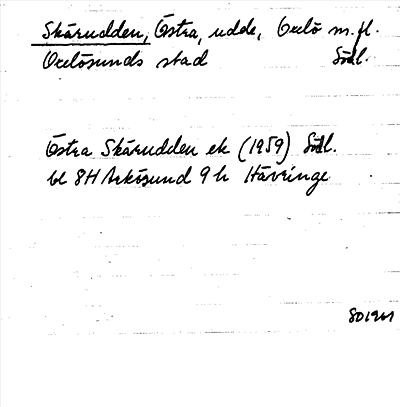 Skärudden, Östra, udde, Oxelö m.fl.
Oxelösunds stad Södl.
Östra Skärudden ek (1959) Södl.
bl 8H Arkösund 9 h Hävringe